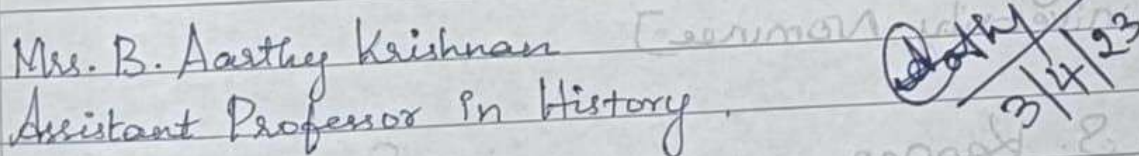 Mrs. B. Aarthy Krishnan
Assistant Professor in History.
3/4/23